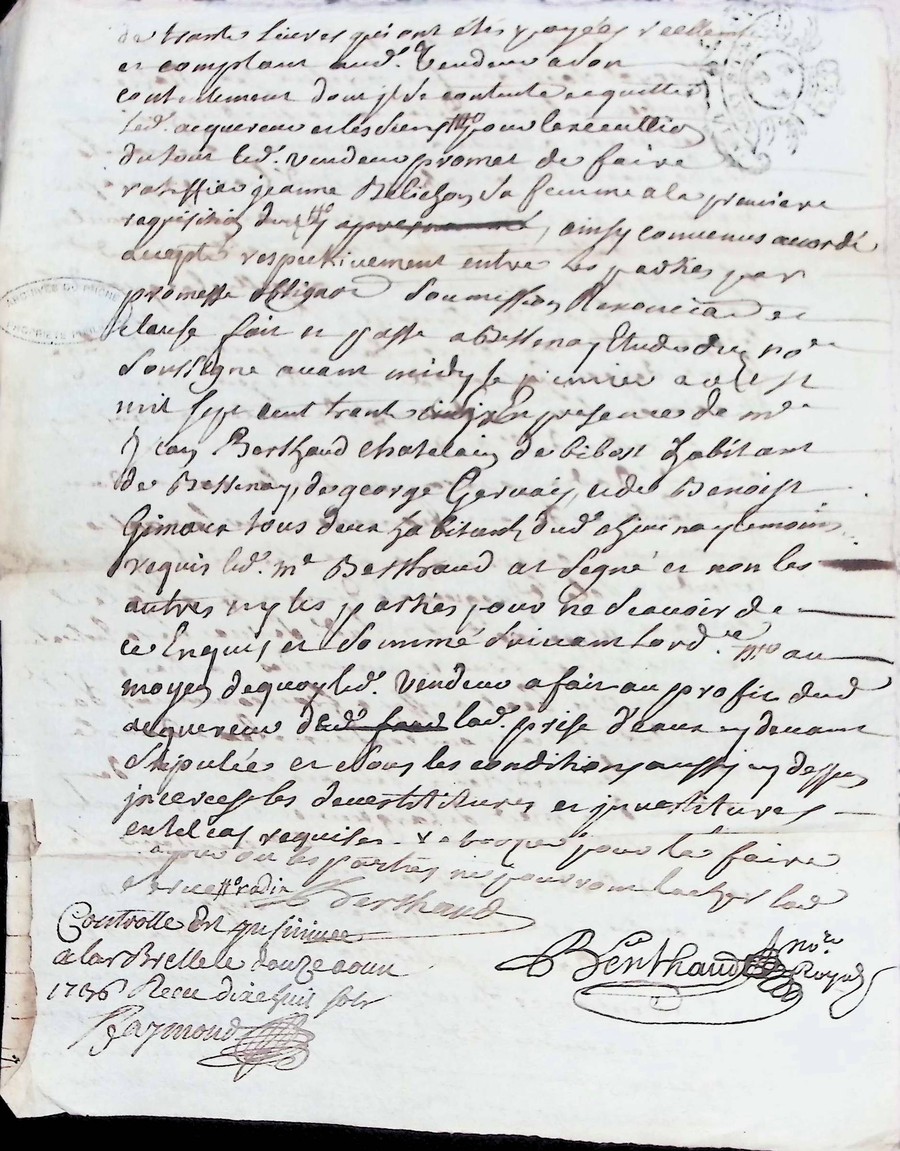 de trante livres qui ont étés payéés reellemt
et comptant audt. Vendeur a son
contentement dont jl se contente en quitte
led. acquereur et les siens pour
du tout led. vendeur promet de faire
ratiffier jeanne sa femme a la premiere
requisition , ainsy convenus accordé
accepté respectivement entre les parties par
promesse obligaon soumission Renonciaon et
clause fait et passé a Bessenay Etude du no.re
soussigné avant midy le premier aoust
mil sept cent trante En presence de me
Jean Berthaud chatelain de bibost habitant
de Bessenay, de george Gervais, et de Benoist
tous deux habitants dud. temoins
requis led. me Berthaud a signé et non les
autres ny les parties pour ne scavoir de
ce Enquis et sommé suivant lord.ce au
moyen de quoy led. vendeur a fait au profit dud
acquereur lad. prise d'eaux cy devant
stipulée et sous les conditions aussy cy dessus
les devestitures et jnvestitures
en tel cas requises pour le faire
les parties ne pourront lad
Berthaud
Controllé Et jnsinué
a larbrelle le douze aoust
1736 Receu dix huit sols
Raymond
Berthaud no.re Royal